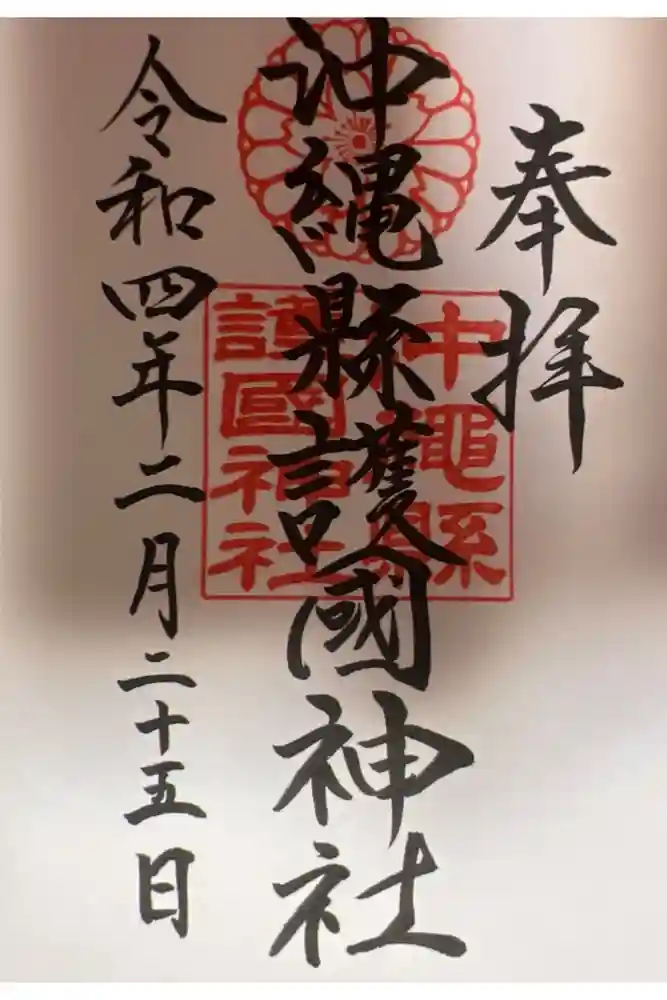 奉拝
沖縄縣護國神社
沖縄縣
護國神社
令和四年二月二十五日